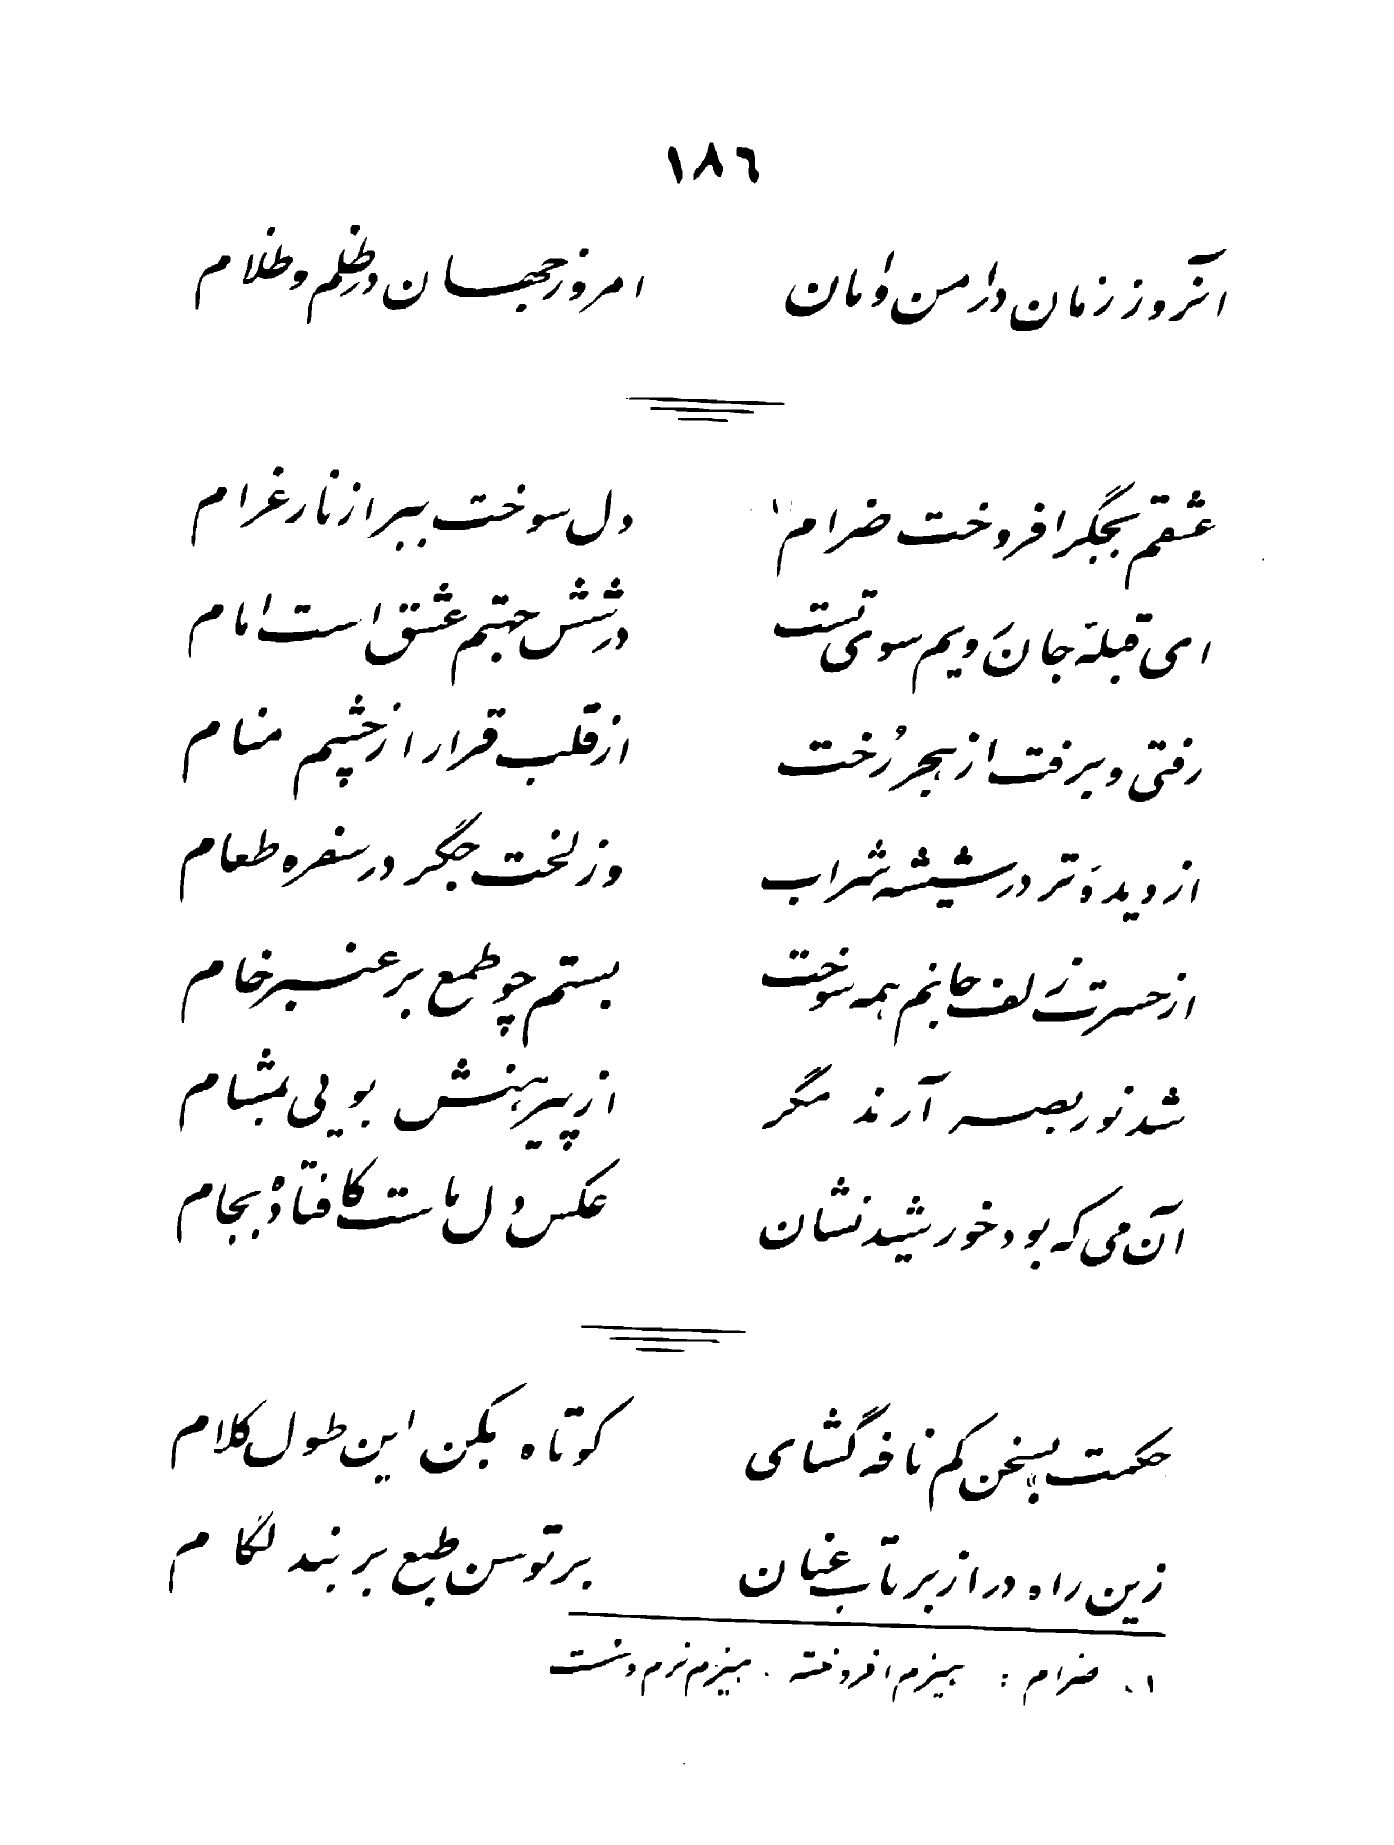 ١٨٦
آنروز زمان در امن و امان امروز جهان در ظلم و ظلام
عشقم بجگر افروخت ضرام۱ دل سوخت ببر از نار غرام
ای قبلهٔ جان رویم سوی تست در شش جهتم عشق است امام
رفتی و برفت از هجر رُخت از قلب قرار از چشم منام
از دیدهٔ تر در شیشه شراب وز لخت جگر در سفره طعام
از حسرت زلف جانم همه سوخت بستم چو طمع بر عنبر خام
شد نور بصر آرند مگر از پیرهنش بویی بمشام
آن می که بود خورشید نشان عکس دل ماست کافتاده بجام
حکمت بسخن کم نافه گشای کوتاه بکن این طول کلام
زین راه دراز برتاب عنان بر توسن طبع بربند لگام
۱. ضرام : هیزم افروخته . هیزم نرم و سست